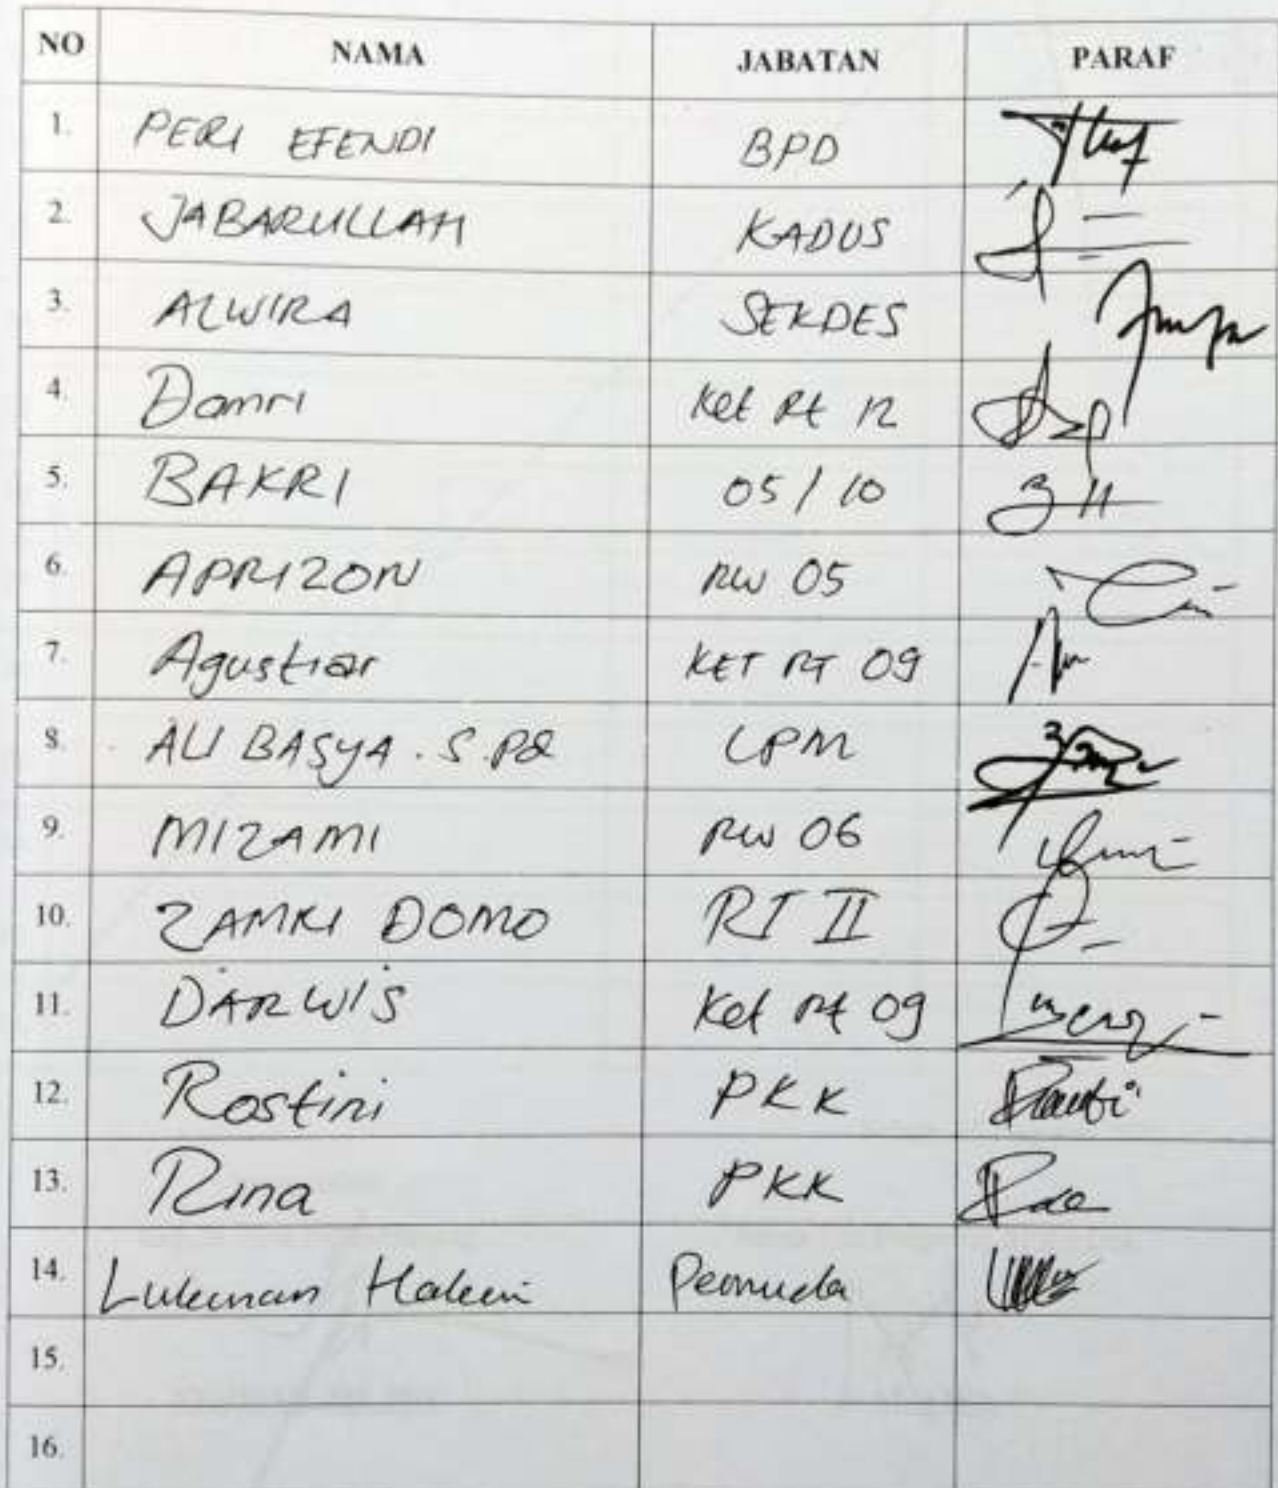 NO NAMA JABATAN PARAF
1. PERI EFENDI BPD
2. JABARULLAH KADUS
3. ALWIRA SEKDES
4. Damri Ket Rt 12
5. BAKRI 05/10
6. APRIZON RW 05
7. Agustiar KET RT 09
8. ALI BASYA . S.Pd LPM
9. MIZAMI RW 06
10. ZAMRI DOMO RT II
11. DARWIS Ket Rt 09
12. Rostini PKK
13. Rina PKK
14. Lukman Hakim Pemuda
15.
16.